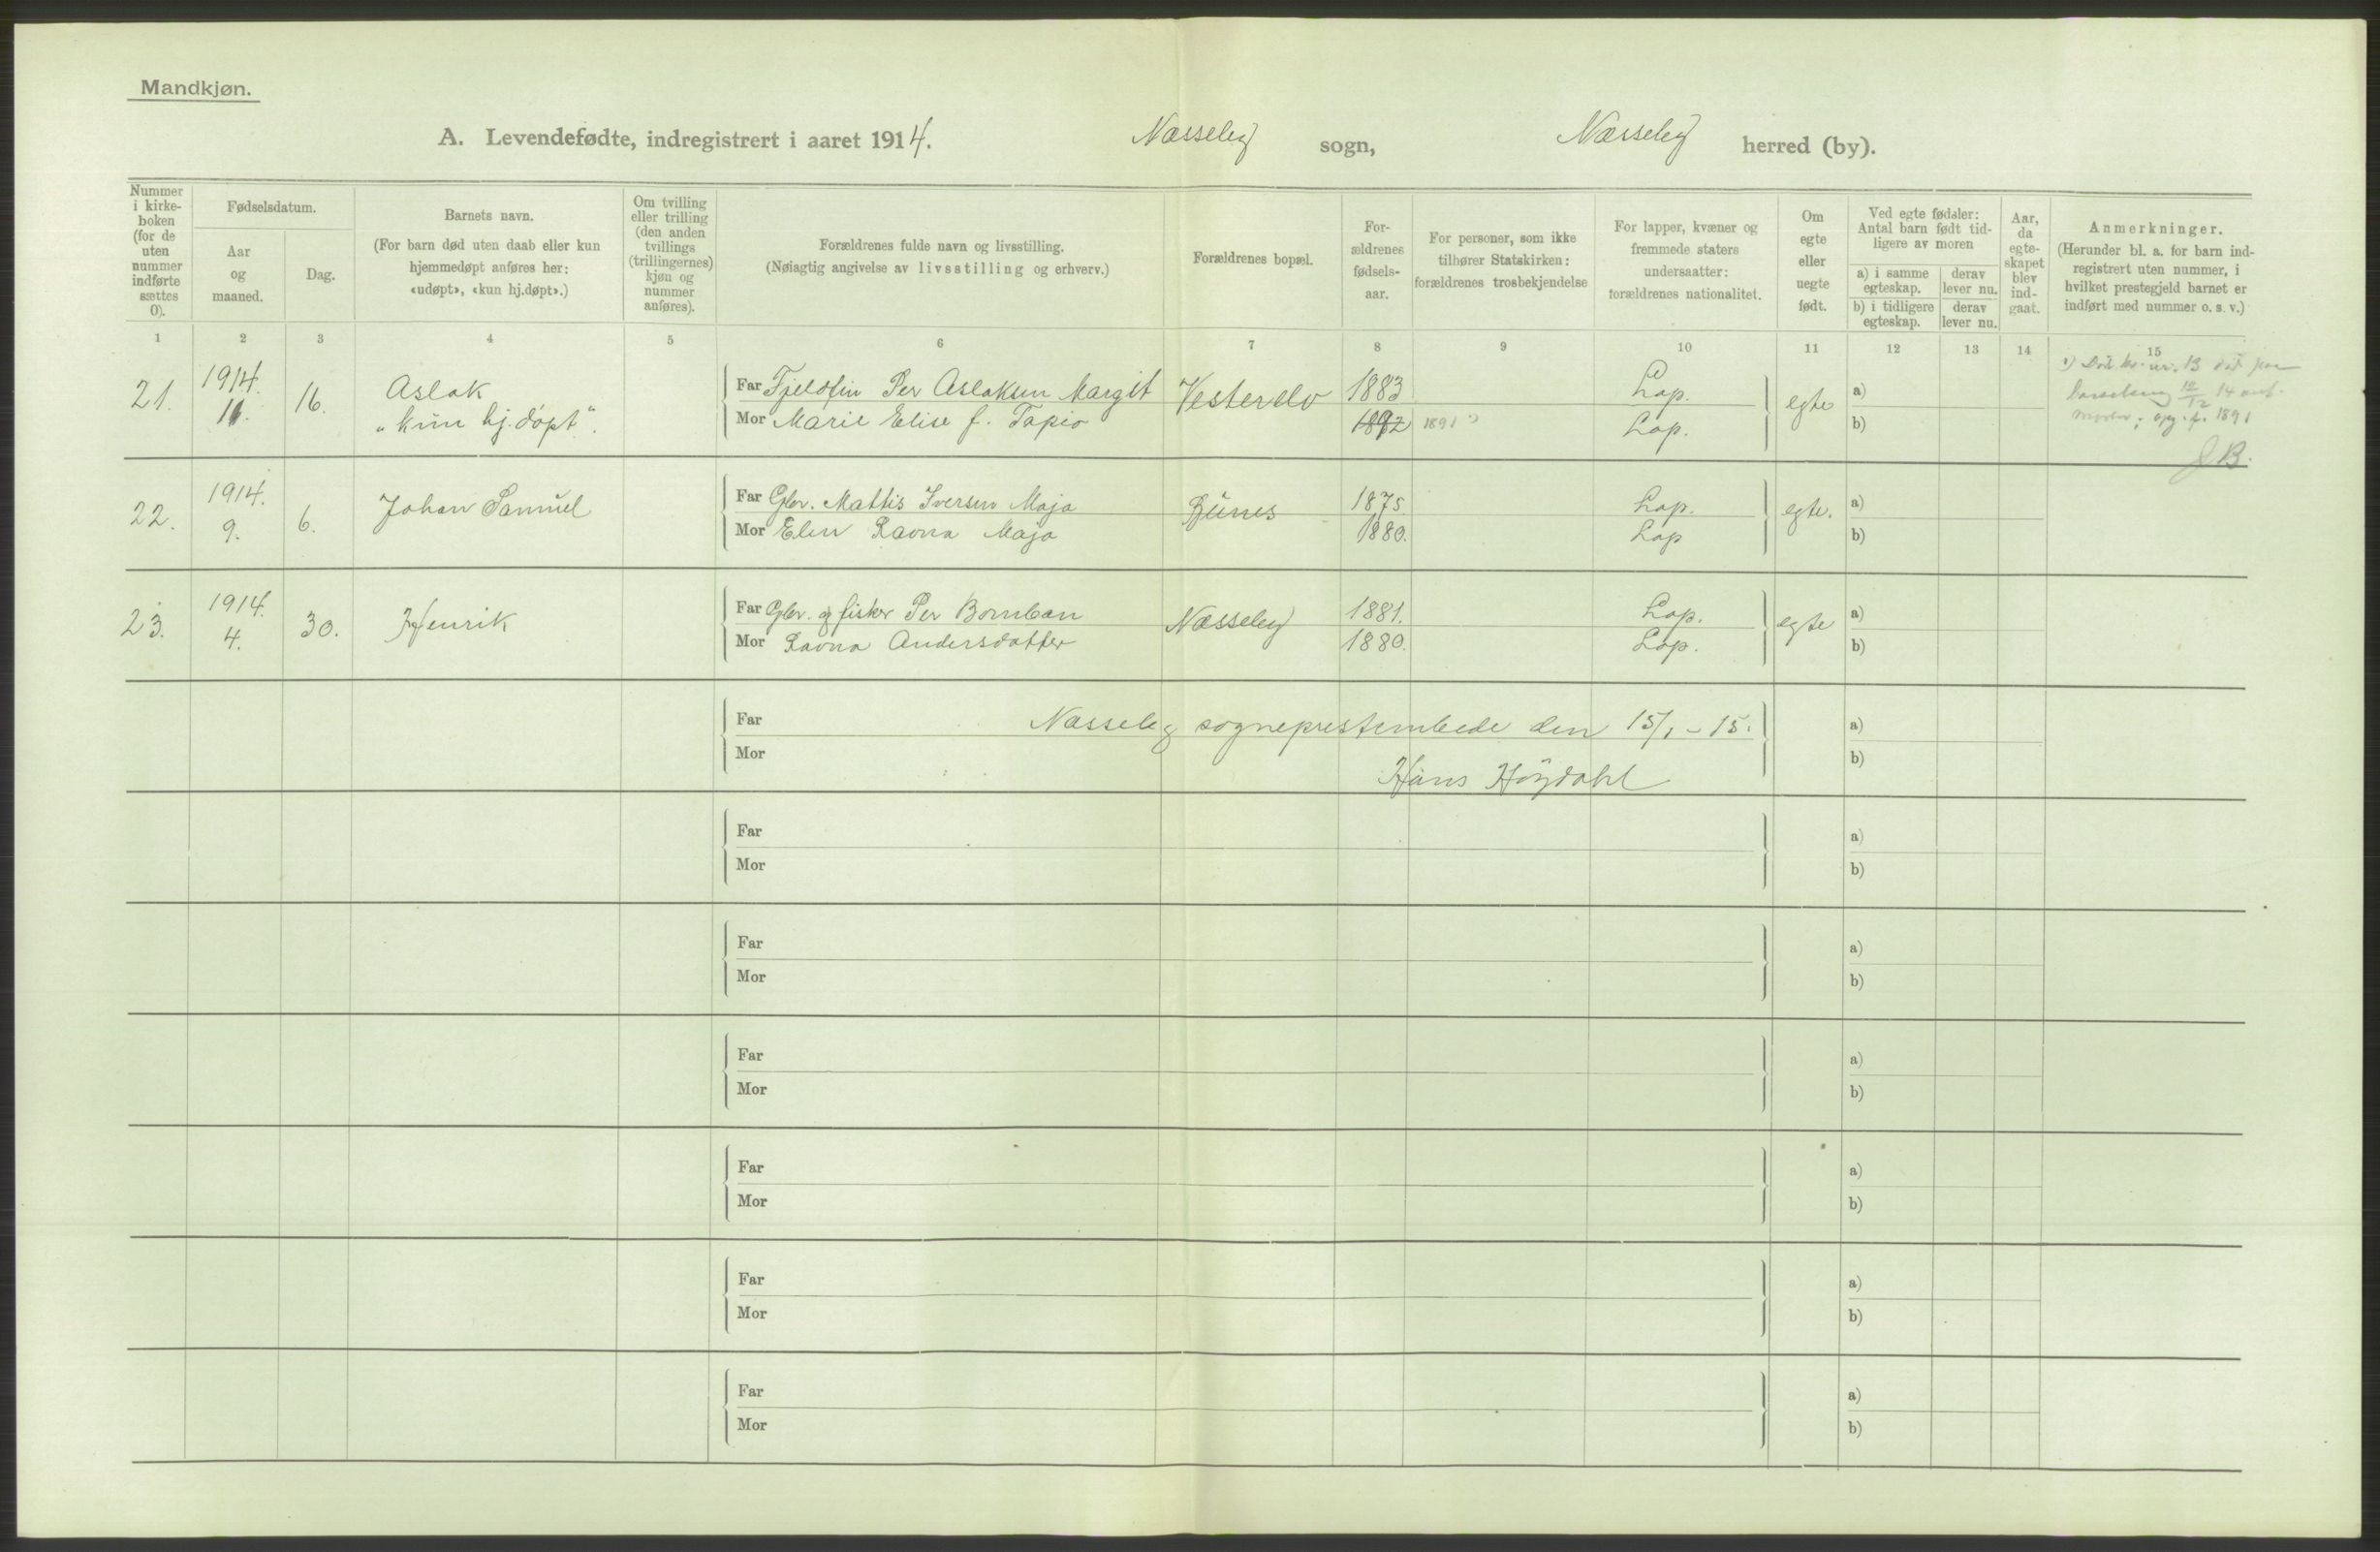 Mandkjøn.
A. Levendefødte, indregistrert i aaret 1914. Næsseby sogn, Næsseby herred (by).
Nummer i kirke-boken (for de uten nummer indførte sættes 0).
Fødselsdatum.
Aar og maaned.
Dag.
Barnets navn.
(For barn død uten daab eller kun hjemmedøpt anføres her: «udøpt», «kun hj.døpt».)
Om tvilling eller trilling (den anden tvillings (trillingernes) kjøn og nummer anføres).
Forældrenes fulde navn og livsstilling.
(Nøiagtig angivelse av livsstilling og erhverv.)
Forældrenes bopæl.
For-ældrenes fødsels-aar.
For personer, som ikke tilhører Statskirken: forældrenes trosbekjendelse
For lapper, kvæner og fremmede staters undersaatter: forældrenes nationalitet.
Om egte eller uegte født.
Ved egte fødsler: Antal barn født tid-ligere av moren
a) i samme egteskap.
derav lever nu.
b) i tidligere egteskap.
derav lever nu.
Aar, da egte-skapet blev ind-gaat.
Anmerkninger.
(Herunder bl. a. for barn ind-registrert uten nummer, i hvilket prestegjeld barnet er indført med nummer o. s. v.)
1 2 3 4 5 6 7 8 9 10 11 12 13 14 15
21. 1914. 11. 16. Aslak „kun hj.døpt“.
Far Fjeldfin Per Aslaksen Margit Vesterelv 1883 Lap. egte a)
Mor Marie Elise f. Tapio 1892 1891 Lap. b)
14
1891
JB.
22. 1914. 9. 6. Johan Samuel
Far Gbr. Mattis Iversen Maja Bunes 1875 Lap. egte. a)
Mor Elen Ravna Maja 1880. Lap b)
23. 1914. 4. 30. Henrik
Far Gbr. og fisker Per Bomban Næsseby 1881. Lap. egte a)
Mor Ravna Andersdatter 1880. Lap. b)
Far Næsseby sogneprestembede den 15/1 - 15. a)
Mor b)
Hans Høydahl
Far a)
Mor b)
Far a)
Mor b)
Far a)
Mor b)
Far a)
Mor b)
Far a)
Mor b)
Far a)
Mor b)